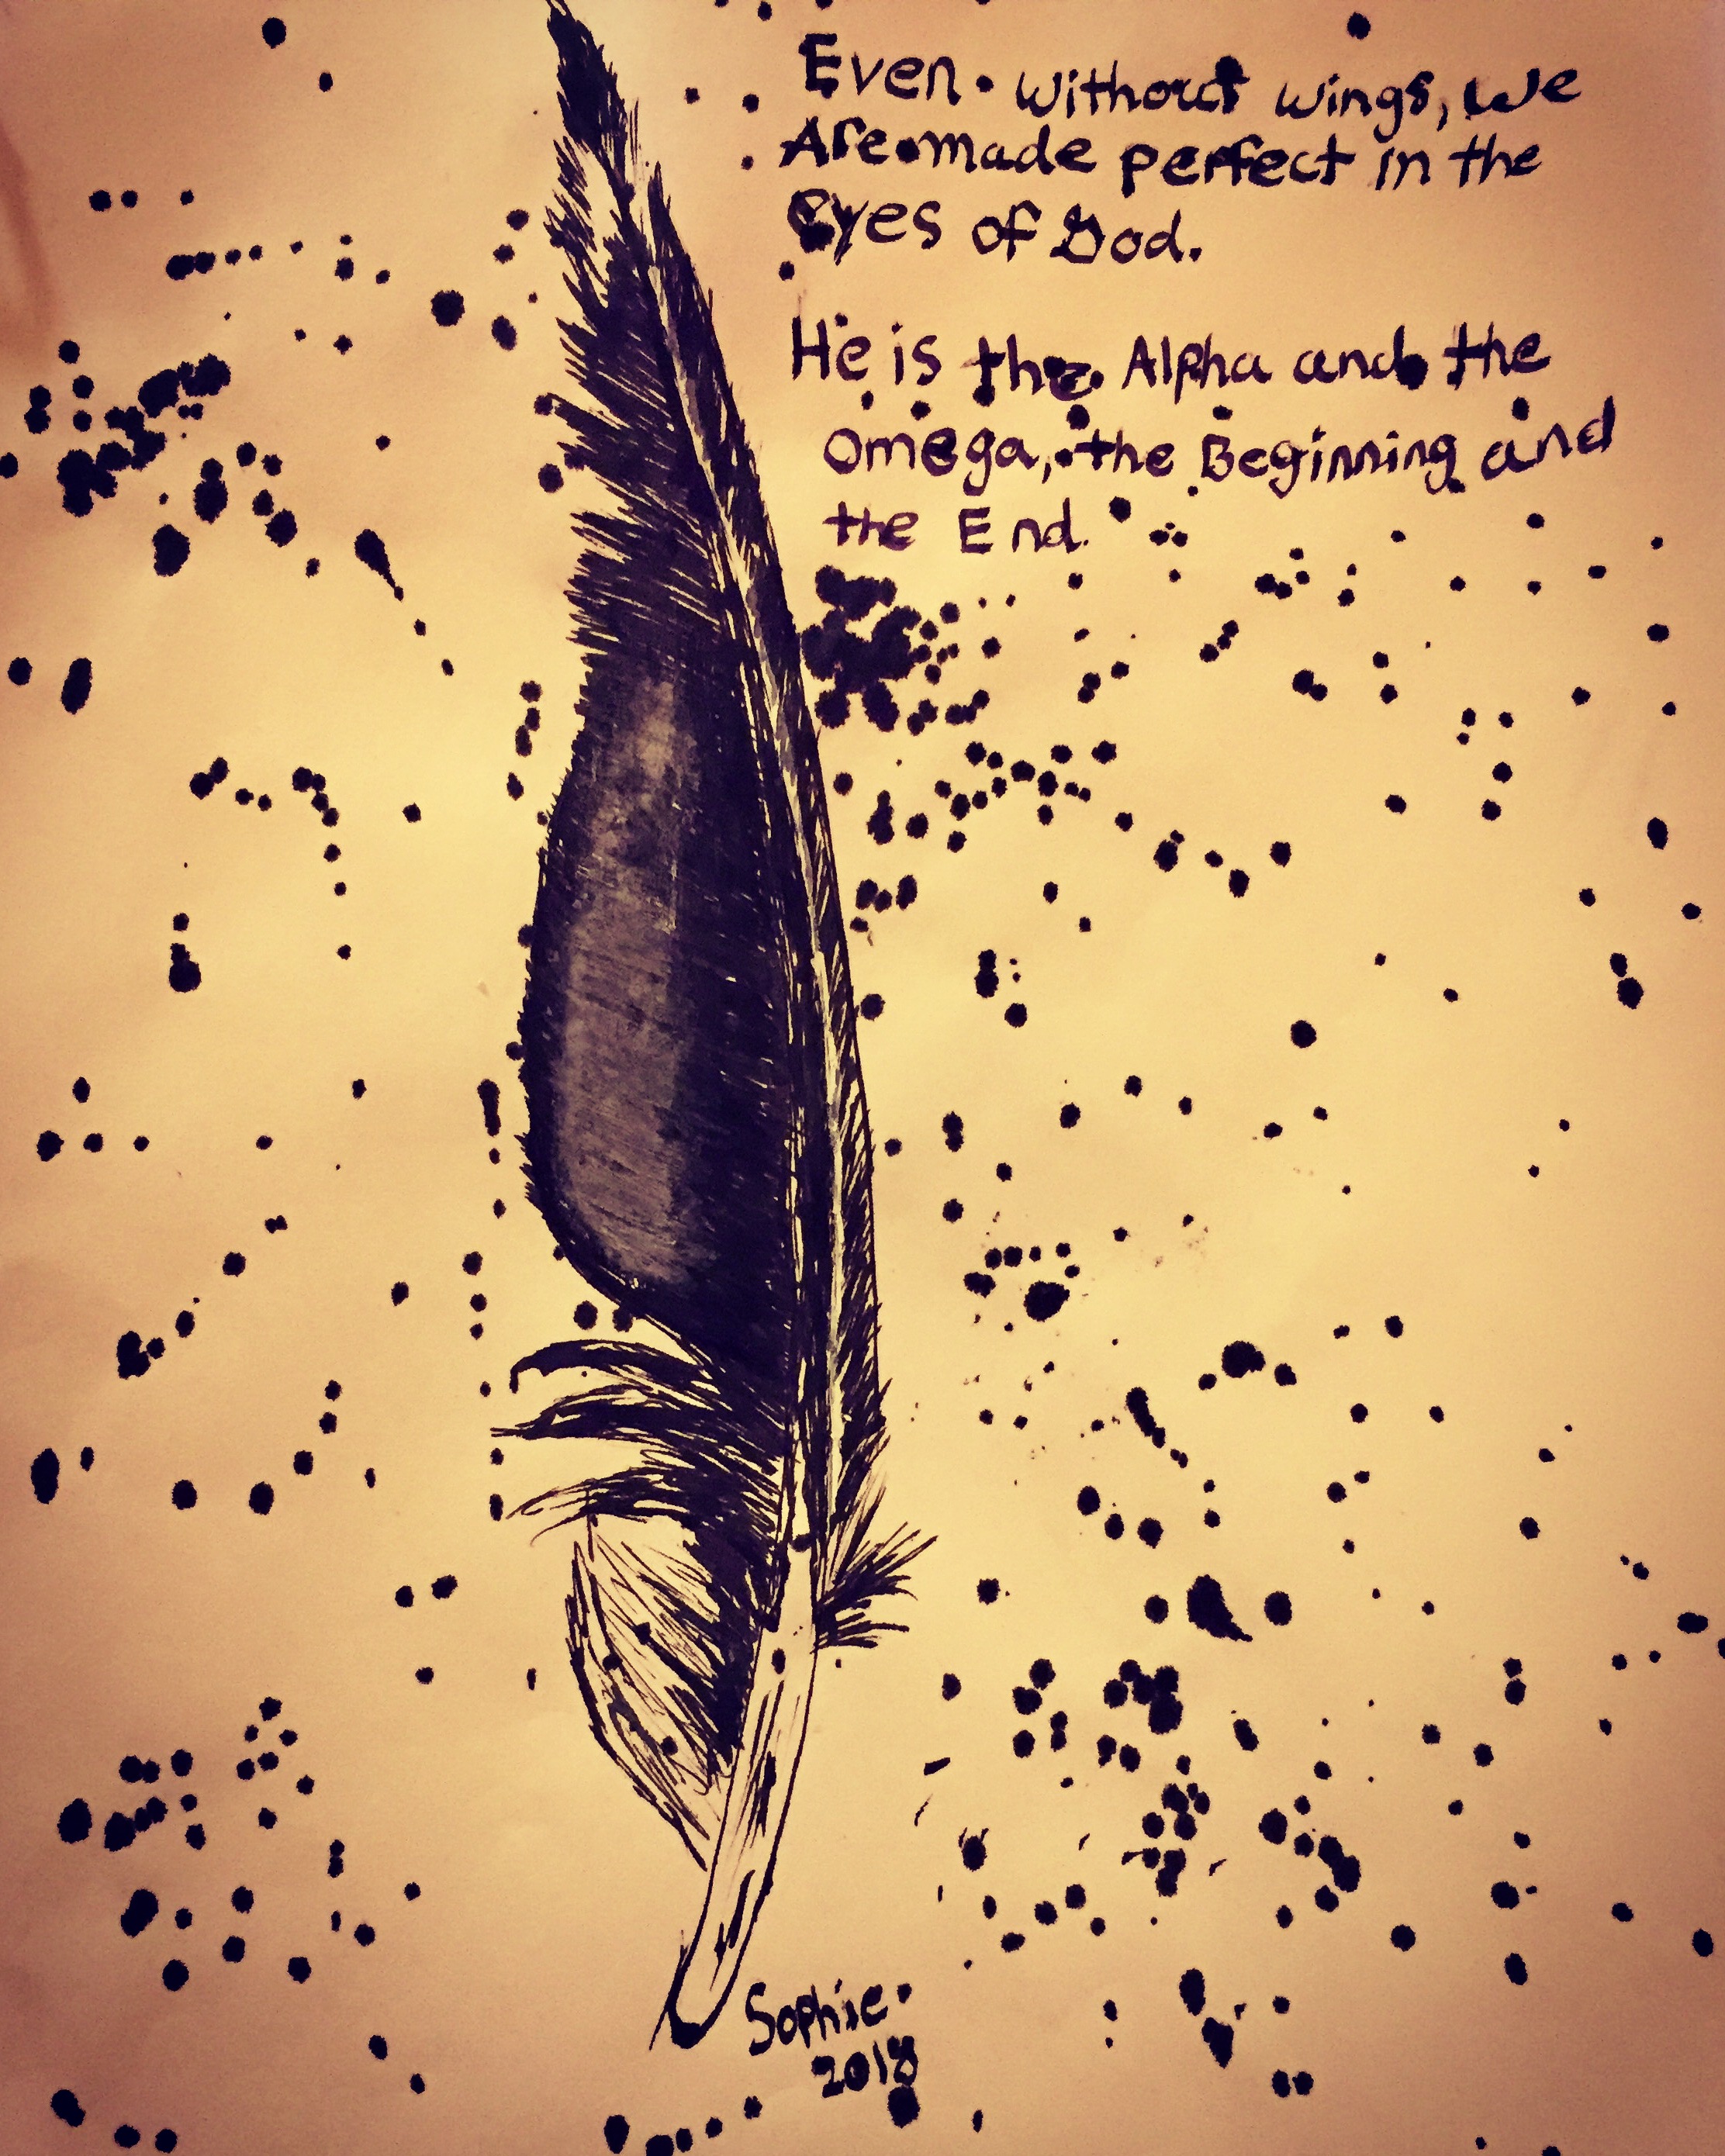 Even without wings, we
Are made perfect in the
Eyes of God.
He is the Alpha and the
Omega, the Beginning and
the End.
Sophie
2018